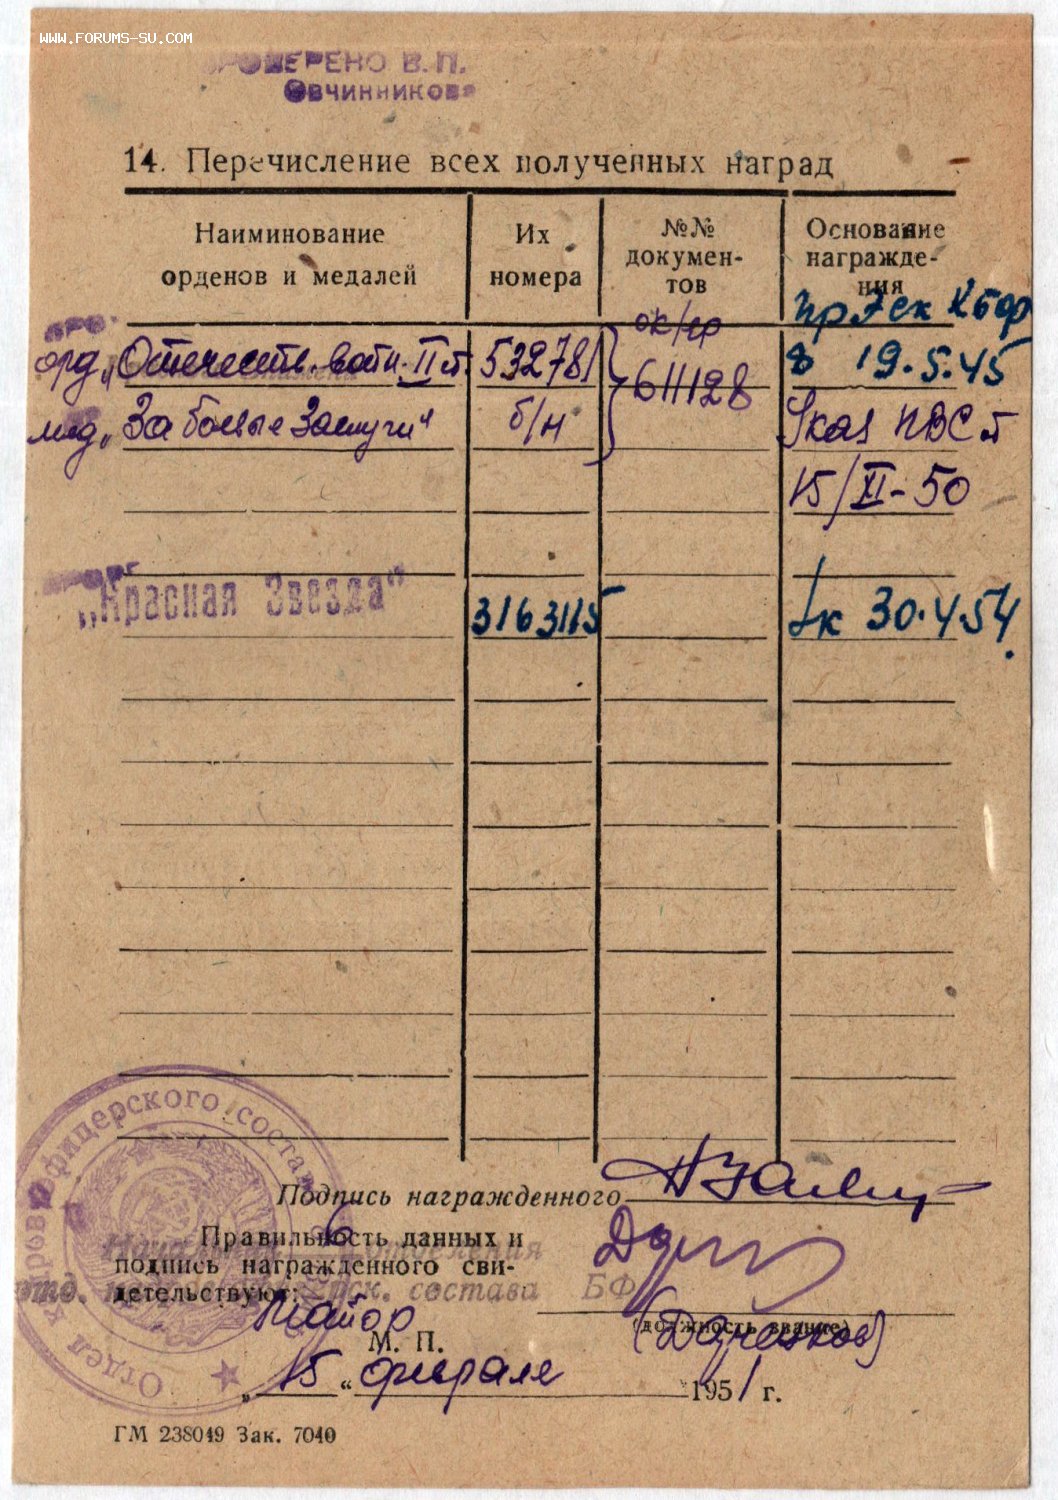 WWW.FORUMS-SU.COM
ПРОВЕРЕНО В.П.
Овчинникова
14. Перечисление всех полученных наград
Наиминование орденов и медалей
Их номера
№№ документов
Основание награждения
орд. „Отечеств. войн. II ст.
532781
ок/гр
611128
Пр 7 ск КБФ
19.5.45
мед. „За боевые Заслуги“
б/н
Указ ПВС от
15/XI-50
„Красная Звезда“
3163115
Ук 30.4.54.
Подпись награжденного
Правильность данных и
подпись награжденного сви-
детельствуют:
Начальник 6 отделения
отд. кадров офицерск. состава БФ
майор
(должность звание)
М. П.
„15“ февраля 1951 г.
Отдел кадров офицерского состава
ГМ 238049 Зак. 7040